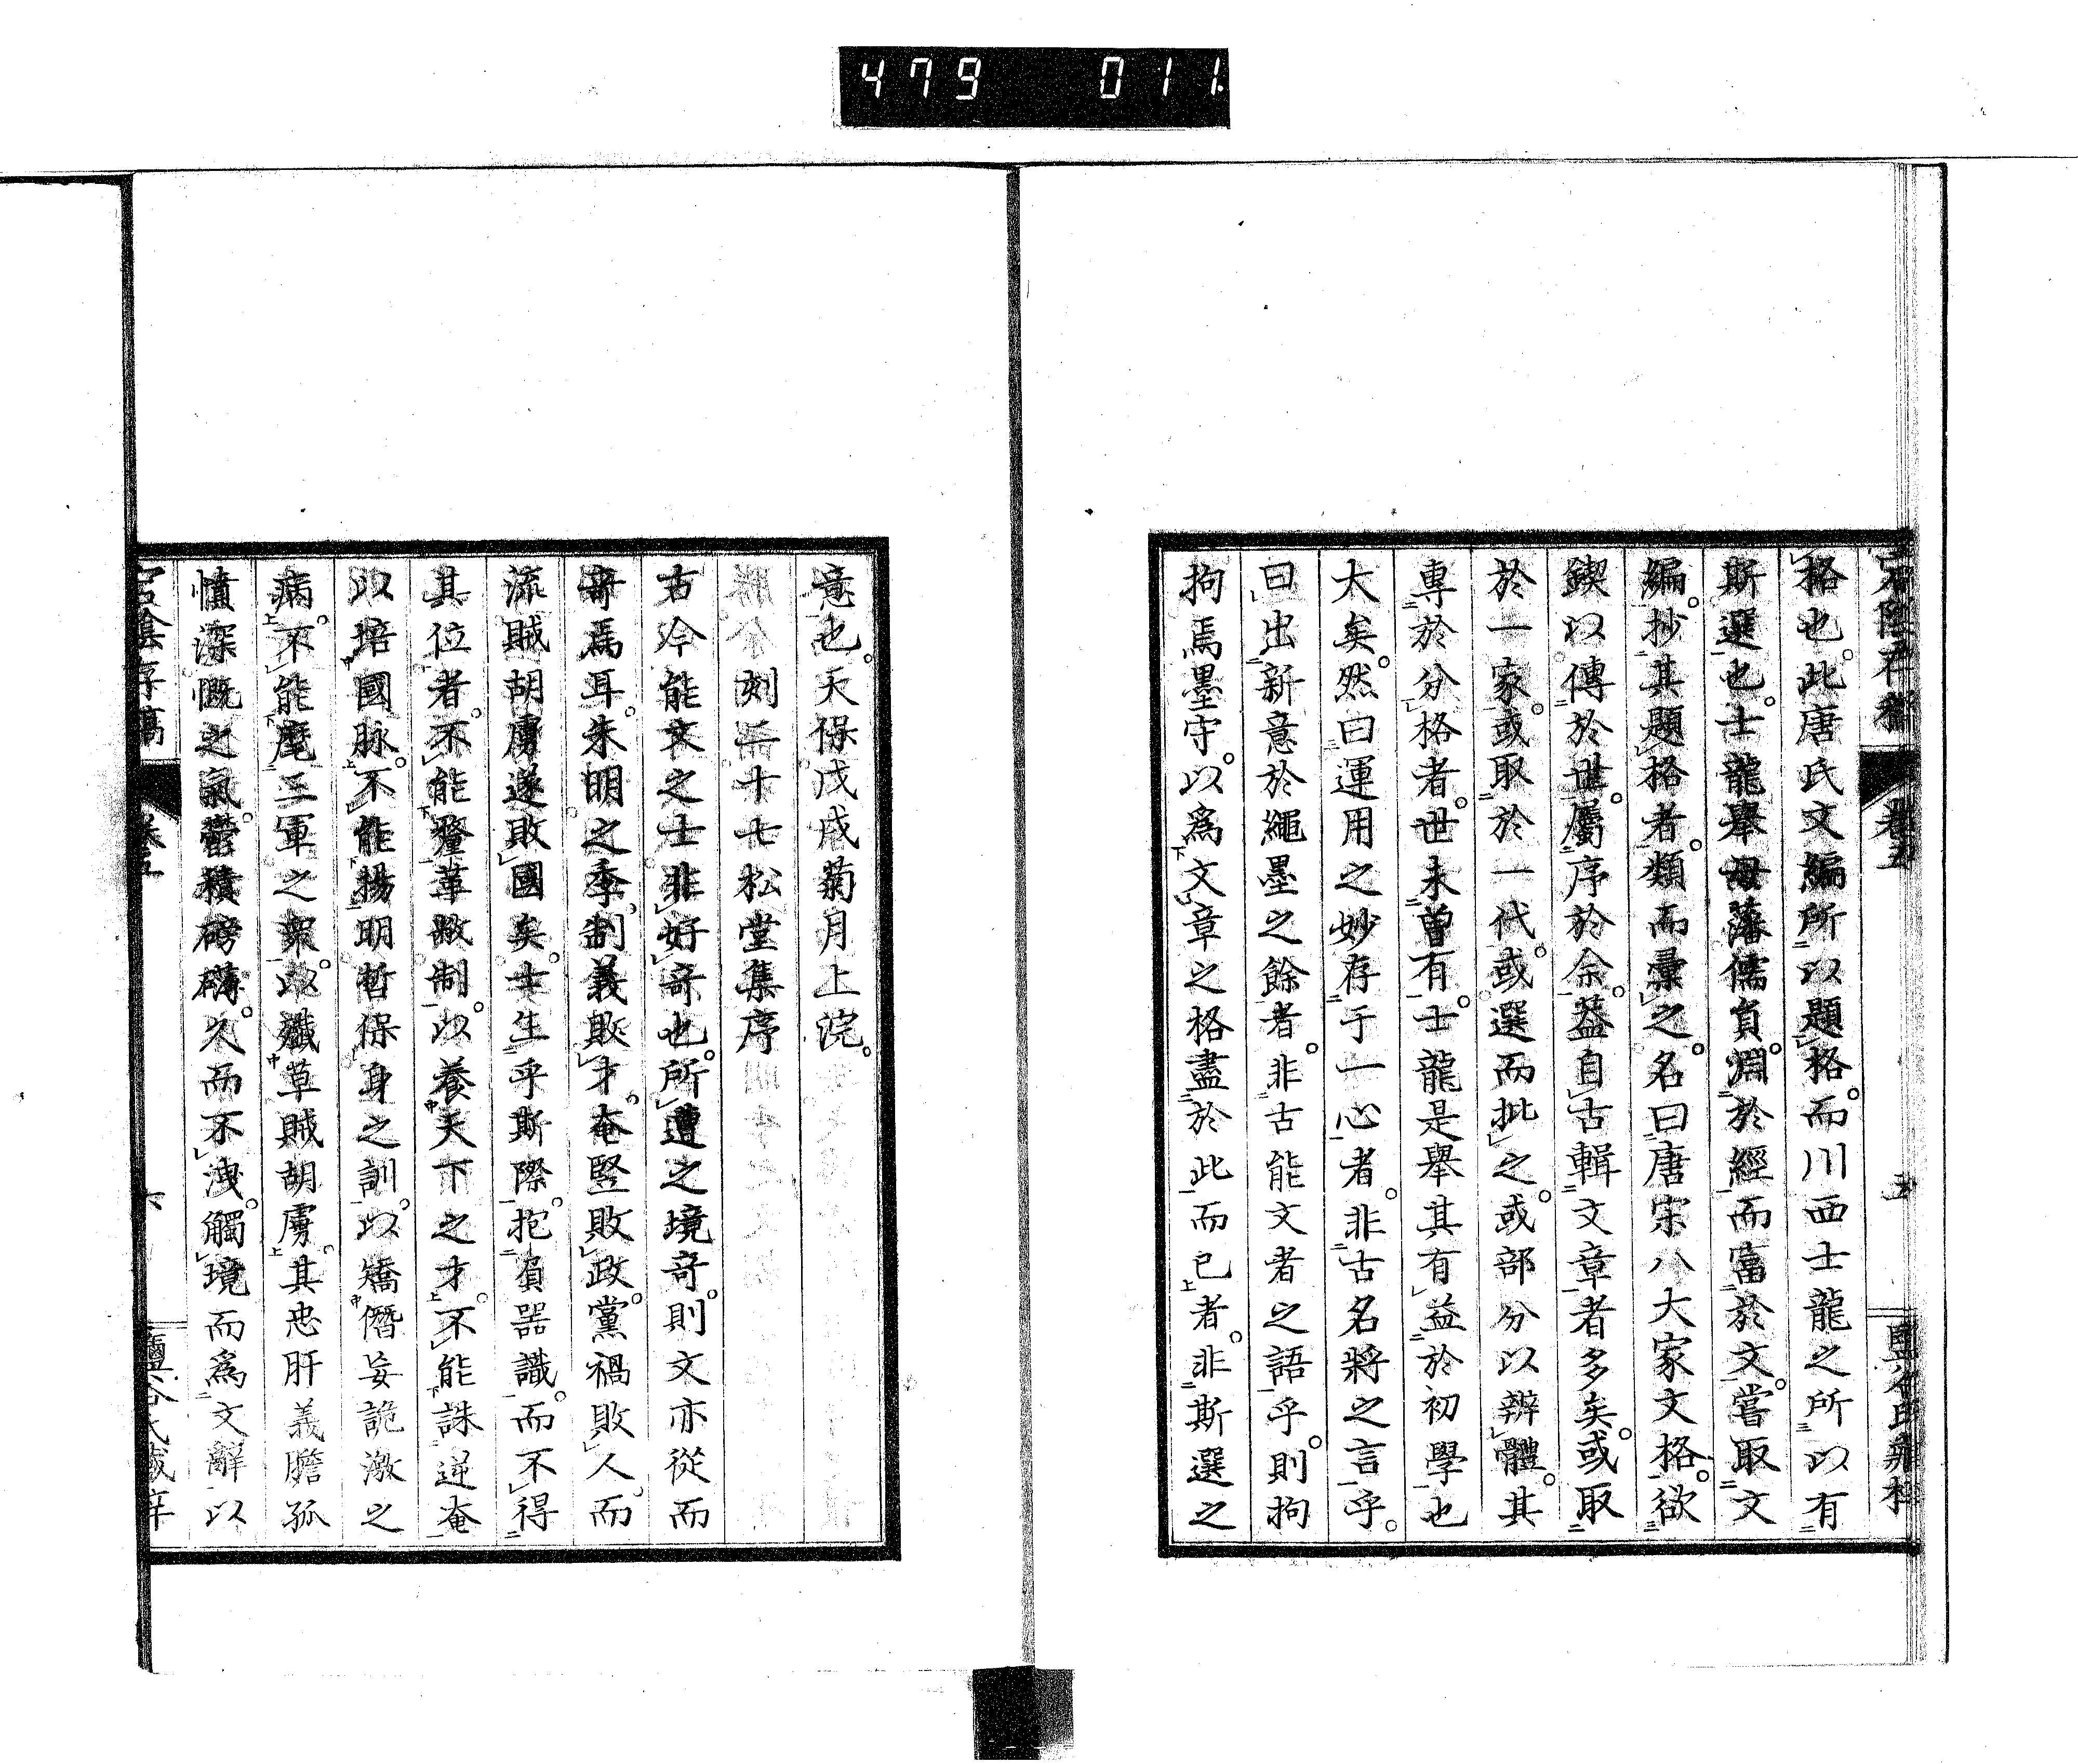 479 011
格也。此唐氏文編所以題格。而川西士龍之所以有
斯選也。士龍舉母藩儒員。淵於經而富於文。嘗取文
編。抄其題格者。類而彙之。名曰唐宋八大家文格。欲
鍥以傳於世。屬序於余。蓋自古輯文章者多矣。或取
於一家。或取於一代。或選而批之。或部分以辨體。其
專於分格者。世未曾有。士龍是舉其有益於初學也
大矣。然曰運用之妙存于一心者。非古名將之言乎。
曰出新意於繩墨之餘者。非古能文者之語乎。則拘
拘焉墨守。以為文章之格盡於此而已者。非斯選之
意也。天保戊戌菊月上浣。
刻二十七松堂集序
古今能文之士非好奇也。所遭之境奇。則文亦從而
奇焉耳。朱明之季。制義敗才。奄豎敗政。黨禍敗人。而
流賊胡虜遂敗國矣。士生乎斯際。抱負器識。而不得
其位者。不能釐革敝制。以養天下之才。不能誅逆奄
以培國脉。不能揚明哲保身之訓。以矯僭妄詭激之
病。不能麾三軍之眾。以殲草賊胡虜。其忠肝義膽孤
憤深慨之氣。鬱積磅礴。久而不洩。觸境而為文辭以
宕陰存稿 卷五 六